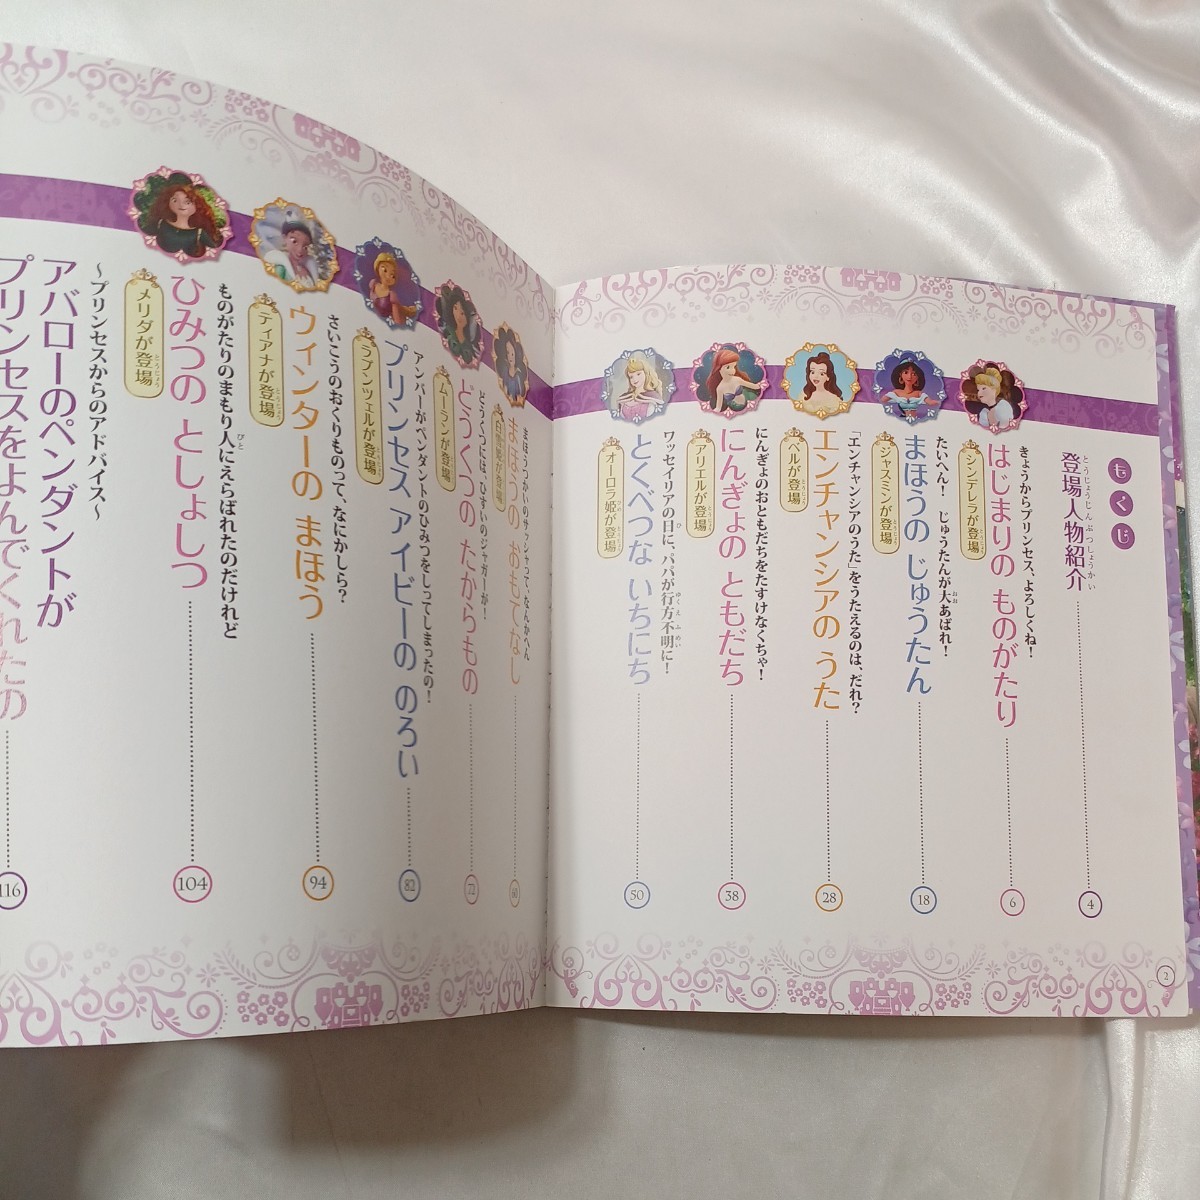 もくじ
登場人物紹介
とうじょうじんぶつしょうかい
4
きょうからプリンセス、よろしくね!
はじまりの ものがたり
シンデレラが登場
とうじょう
6
たいへん! じゅうたんが大あばれ!
おお
まほうの じゅうたん
ジャスミンが登場
とうじょう
18
「エンチャンシアのうた」をうたえるのは、だれ?
エンチャンシアの うた
ベルが登場
とうじょう
28
にんぎょのおともだちをたすけなくちゃ!
にんぎょの ともだち
アリエルが登場
とうじょう
38
ワッセイリアの日に、パパが行方不明に!
ひ
ゆくえふめい
とくべつな いちにち
オーロラ姫が登場
ひめ
とうじょう
50
2
まほうつかいのサッシャって、なんかへん
まほうの おもてなし
白雪姫が登場
60
どうくつには、ひすいのジャガーが!
どうくつの たからもの
ムーランが登場
とうじょう
72
アンバーがペンダントのひみつをしってしまったの!
プリンセス アイビーの のろい
ラプンツェルが登場
とうじょう
82
さいこうのおくりものって、なにかしら?
ウィンターの まほう
ティアナが登場
とうじょう
94
ものがたりのまもり人にえらばれたのだけれど
びと
ひみつの としょしつ
メリダが登場
とうじょう
104
～プリンセスからのアドバイス～
アバローのペンダントが
プリンセスをよんでくれたの
116